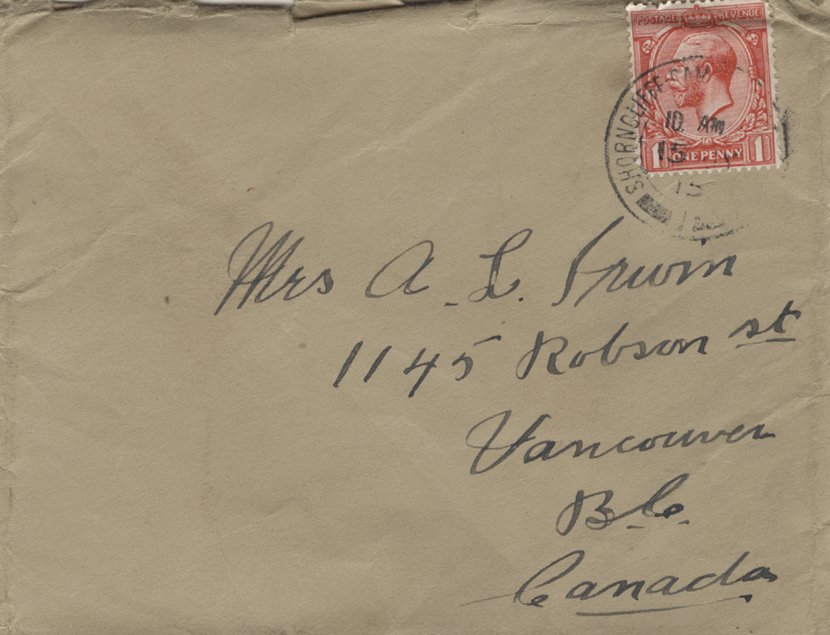 POSTAGE REVENUE
1 ONE PENNY 1
SHORNCLIFFE CAM
10 AM
15
15
Mrs A. L. Irwin
1145 Robson st
Vancouver
B.C.
Canada